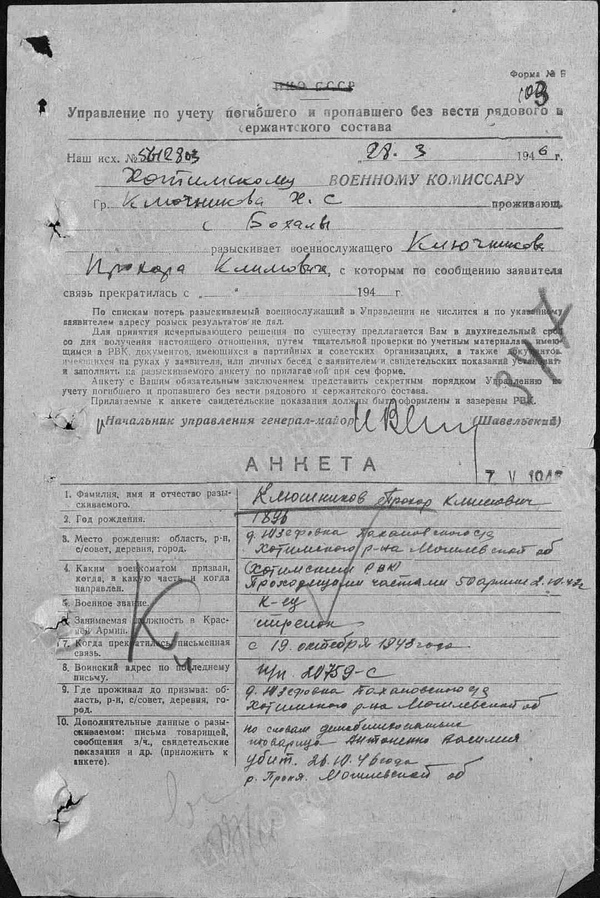 Форма № 9
НКО СССР
103
Управление по учету погибшего и пропавшего без вести рядового и
сержантского состава
Наш исх. №5612803 „28. 3 194 6 г.
Хотимскому ВОЕННОМУ КОМИССАРУ
Гр. Ключникова Х. С проживающ.
с Бохалы
разыскивает военнослужащего Ключникова
Прохора Климовича, с которым по сообщению заявителя
связь прекратилась с „ “ 194 г.
По спискам потерь разыскиваемый военнослужащий в Управлении не числится и по указанному
заявителем адресу розыск результатов не дал.
Для принятия исчерпывающего решения по существу предлагается Вам в двухнедельный срок
со дня получения настоящего отношения, путем тщательной проверки по учетным материалам, имею-
щимся в РВК, документов, имеющихся в партийных и советских организациях, а также документов,
имеющихся на руках у заявителя, или личных бесед с заявителем и свидетельских показаний установить
и заполнить на разыскиваемого анкету по прилагаемой при сем форме.
Анкету с Вашим обязательным заключением представить секретным порядком Управлению по
учету погибшего и пропавшего без вести рядового и сержантского состава.
Прилагаемые к анкете свидетельские показания должны быть оформлены и заверены РВК.
Начальник управления генерал-майор (Шавельский)
АНКЕТА
7 V 194
1. Фамилия, имя и отчество разы-
скиваемого.
Клюшников Прохор Климович
2. Год рождения.
1896
3. Место рождения: область, р-н,
с/совет, деревня, город.
д. Юзефовка Пахановского с/с
Хотимского р-на Могилевской об
4. Каким военкоматом призван,
когда, в какую часть и когда
направлен.
Хотимский РВК
Проходящими частями 50 армии 2.10.43 г
5. Военное звание.
к-ец
6. Занимаемая должность в Крас-
ной Армии.
стрелок
7. Когда прекратилась письменная
связь.
с 19 октября 1943 года
8. Воинский адрес по последнему
письму.
п/п. 20759-с
9. Где проживал до призыва: об-
ласть, р-н, с/совет, деревня, го-
род.
д. Юзефовка Пахановского с/с
Хотимского р-на Могилевской об
10. Дополнительные данные о разы-
скиваемом: письма товарищей,
сообщения в/ч., свидетельские
показания и др. (приложить к
анкете).
по словам
товарища Антоненко Василия
убит. 26.10.43 года
р. Проня. Могилевской об